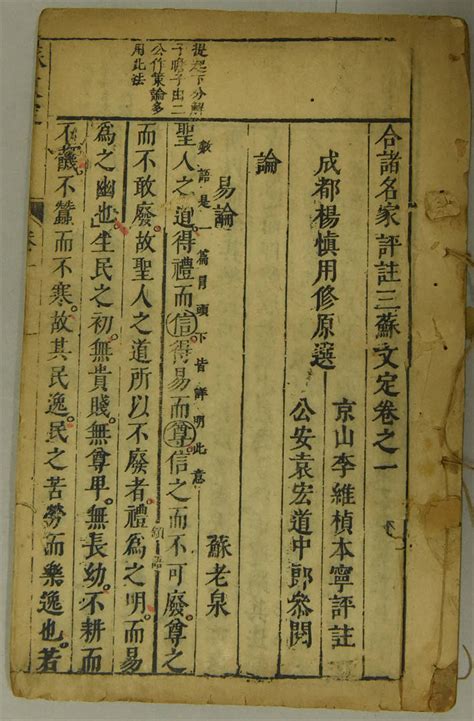 合諸名家評註三蘇文定卷之一
成都楊慎用修原選
京山李維楨本寧評註
公安袁宏道中郎參閱
論
易論
蘇老泉
數語是一篇冒頭下皆詳明此意
聖人之道得禮而信得易而尊信之而不可廢尊之
而不敢廢故聖人之道所以不廢者禮為之明而易
領語
為之幽也生民之初無貴賤無尊卑無長幼不耕而
不饑不蠶而不寒故其民逸民之苦勞而樂逸也若
提起下分解
子瞻子由二
公作策論多
用此法